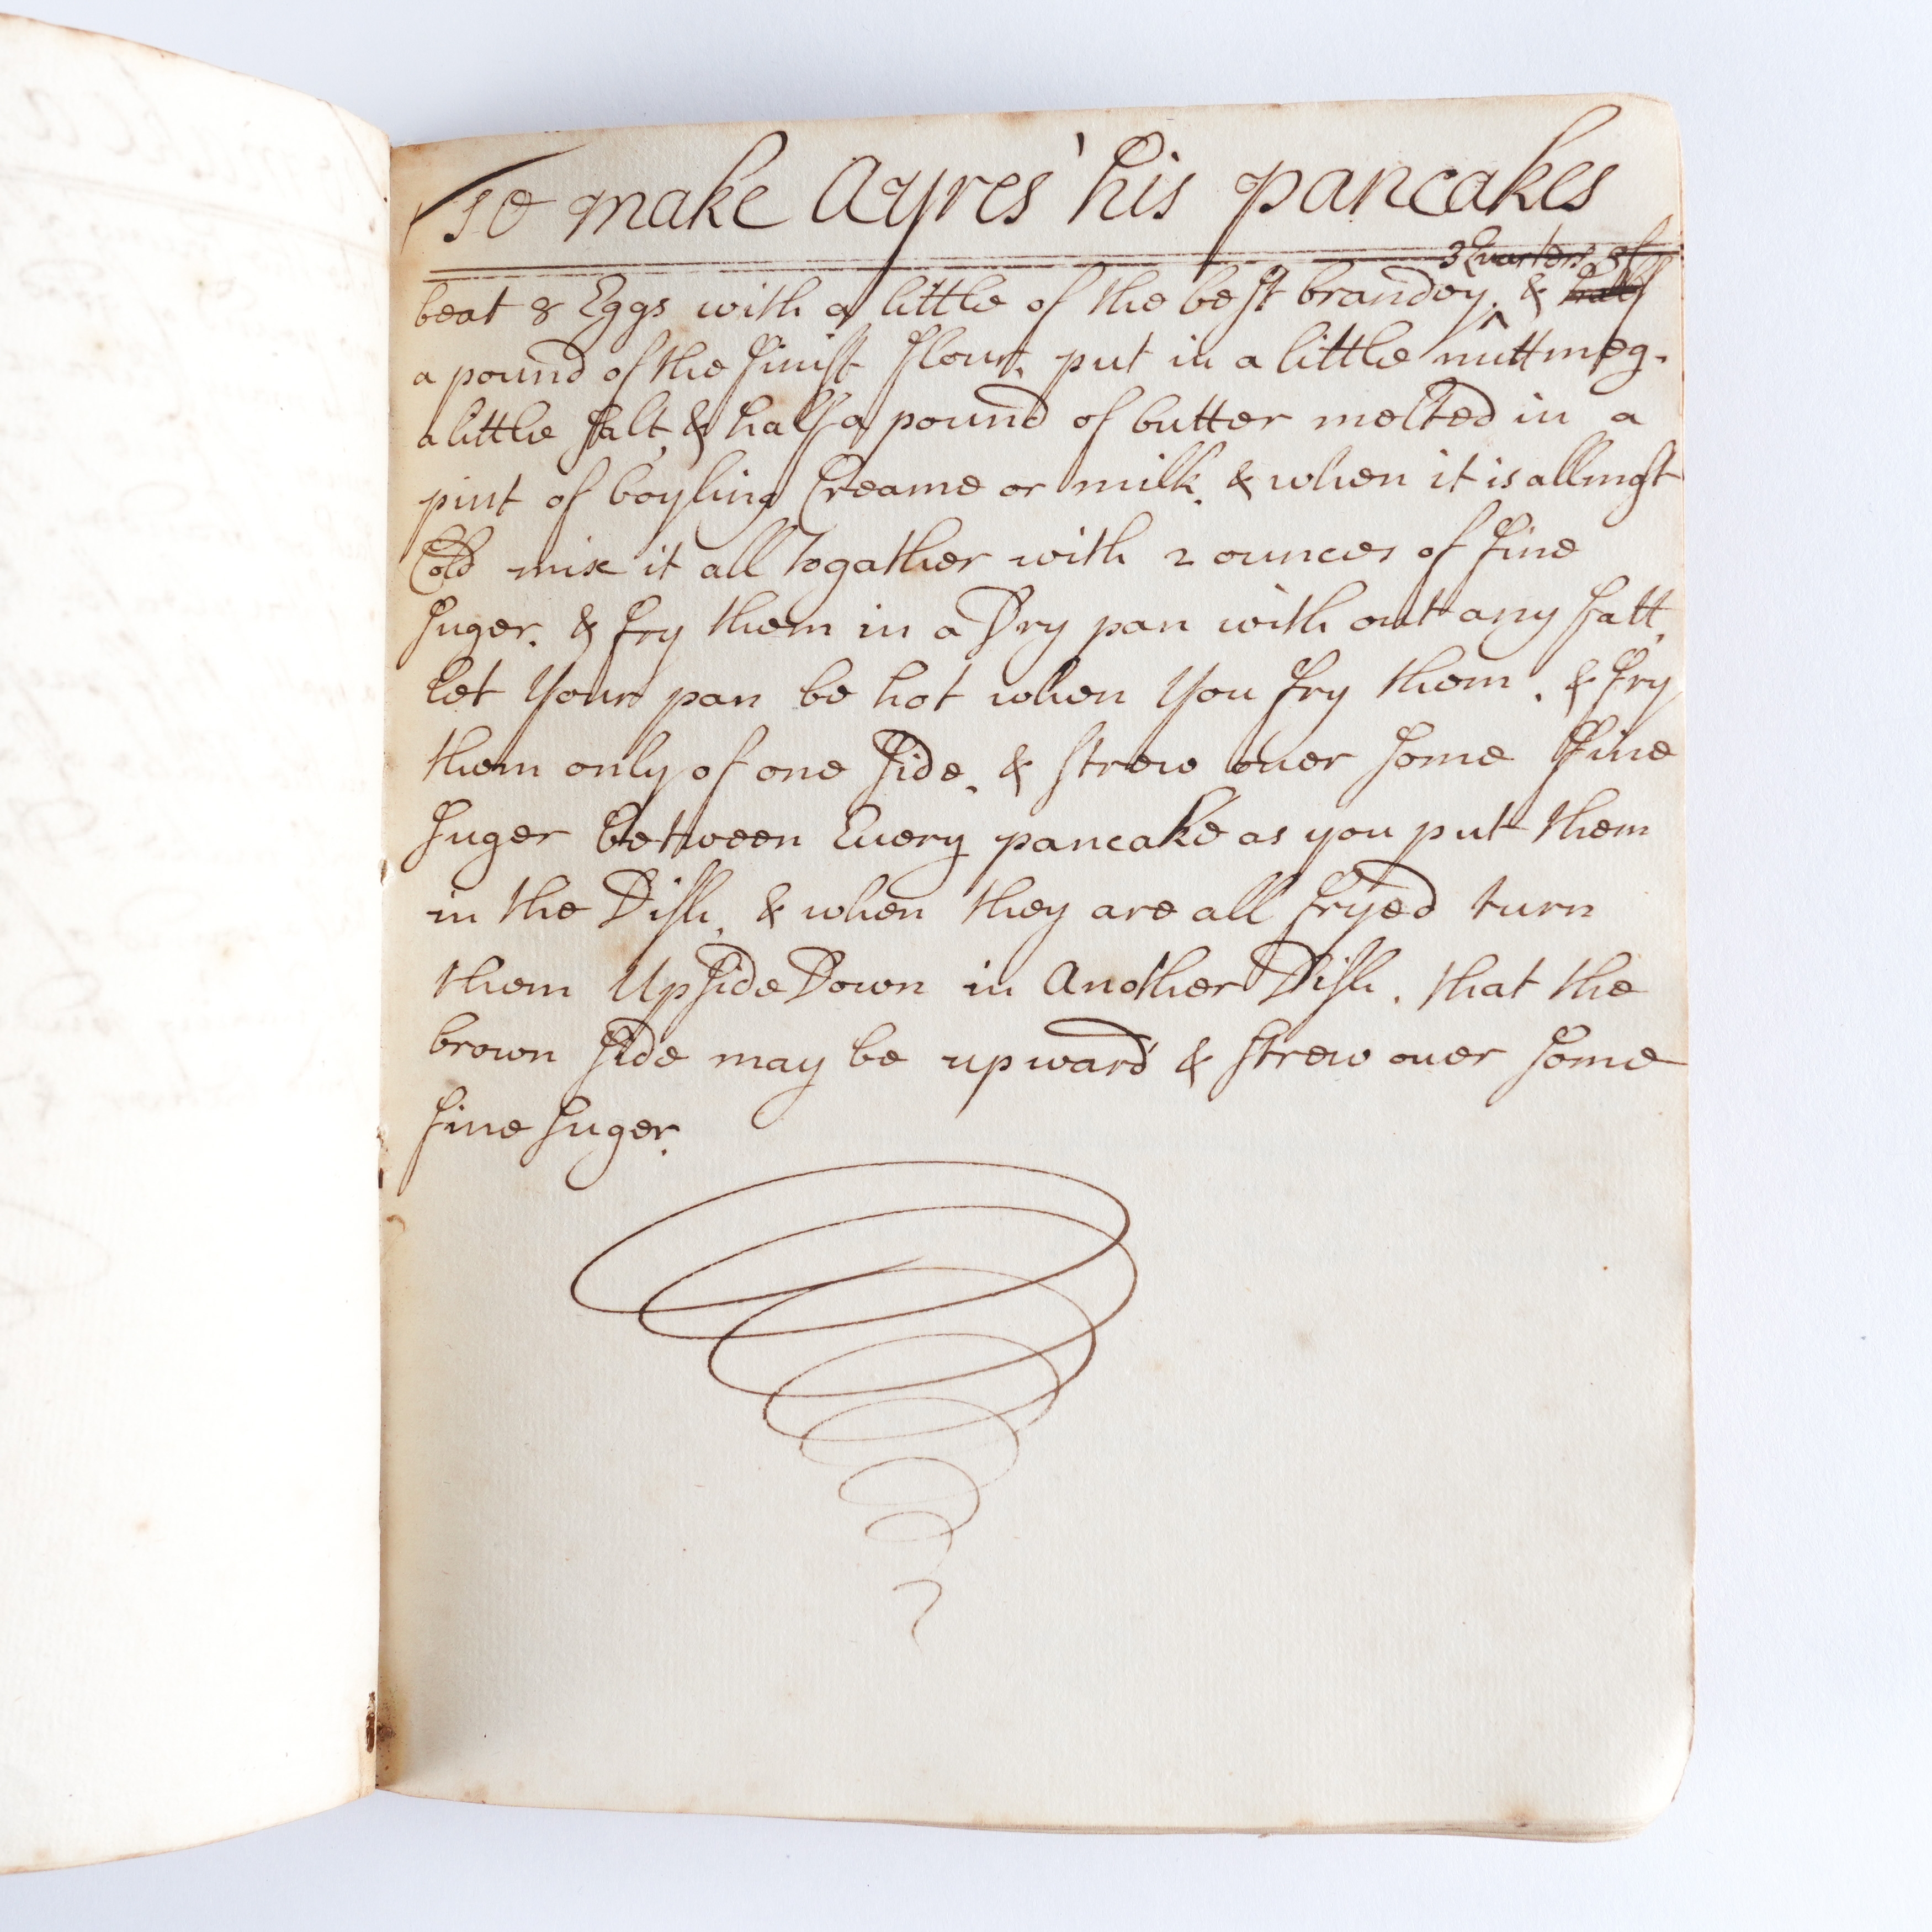 To make Ayres' his pancakes
3 Quarters of
beat 8 Eggs with a little of the best brandey. & half
a pound of the finist flour, put in a little nuttmeg.
a little salt, & half a pound of butter melted in a
pint of boyling Creame or milk. & when it is allmost
Cold mix it all Togather with 2 ounces of fine
suger. & fry them in a Dry pan with out any fatt.
let Your pan be hot when You fry them. & fry
them only of one side. & strew ouer some fine
suger between Euery pancake as you put them
in the Dish. & when they are all fryed turn
them UpsideDown in Another Dish. that the
brown side may be upward & strew ouer some
fine suger.